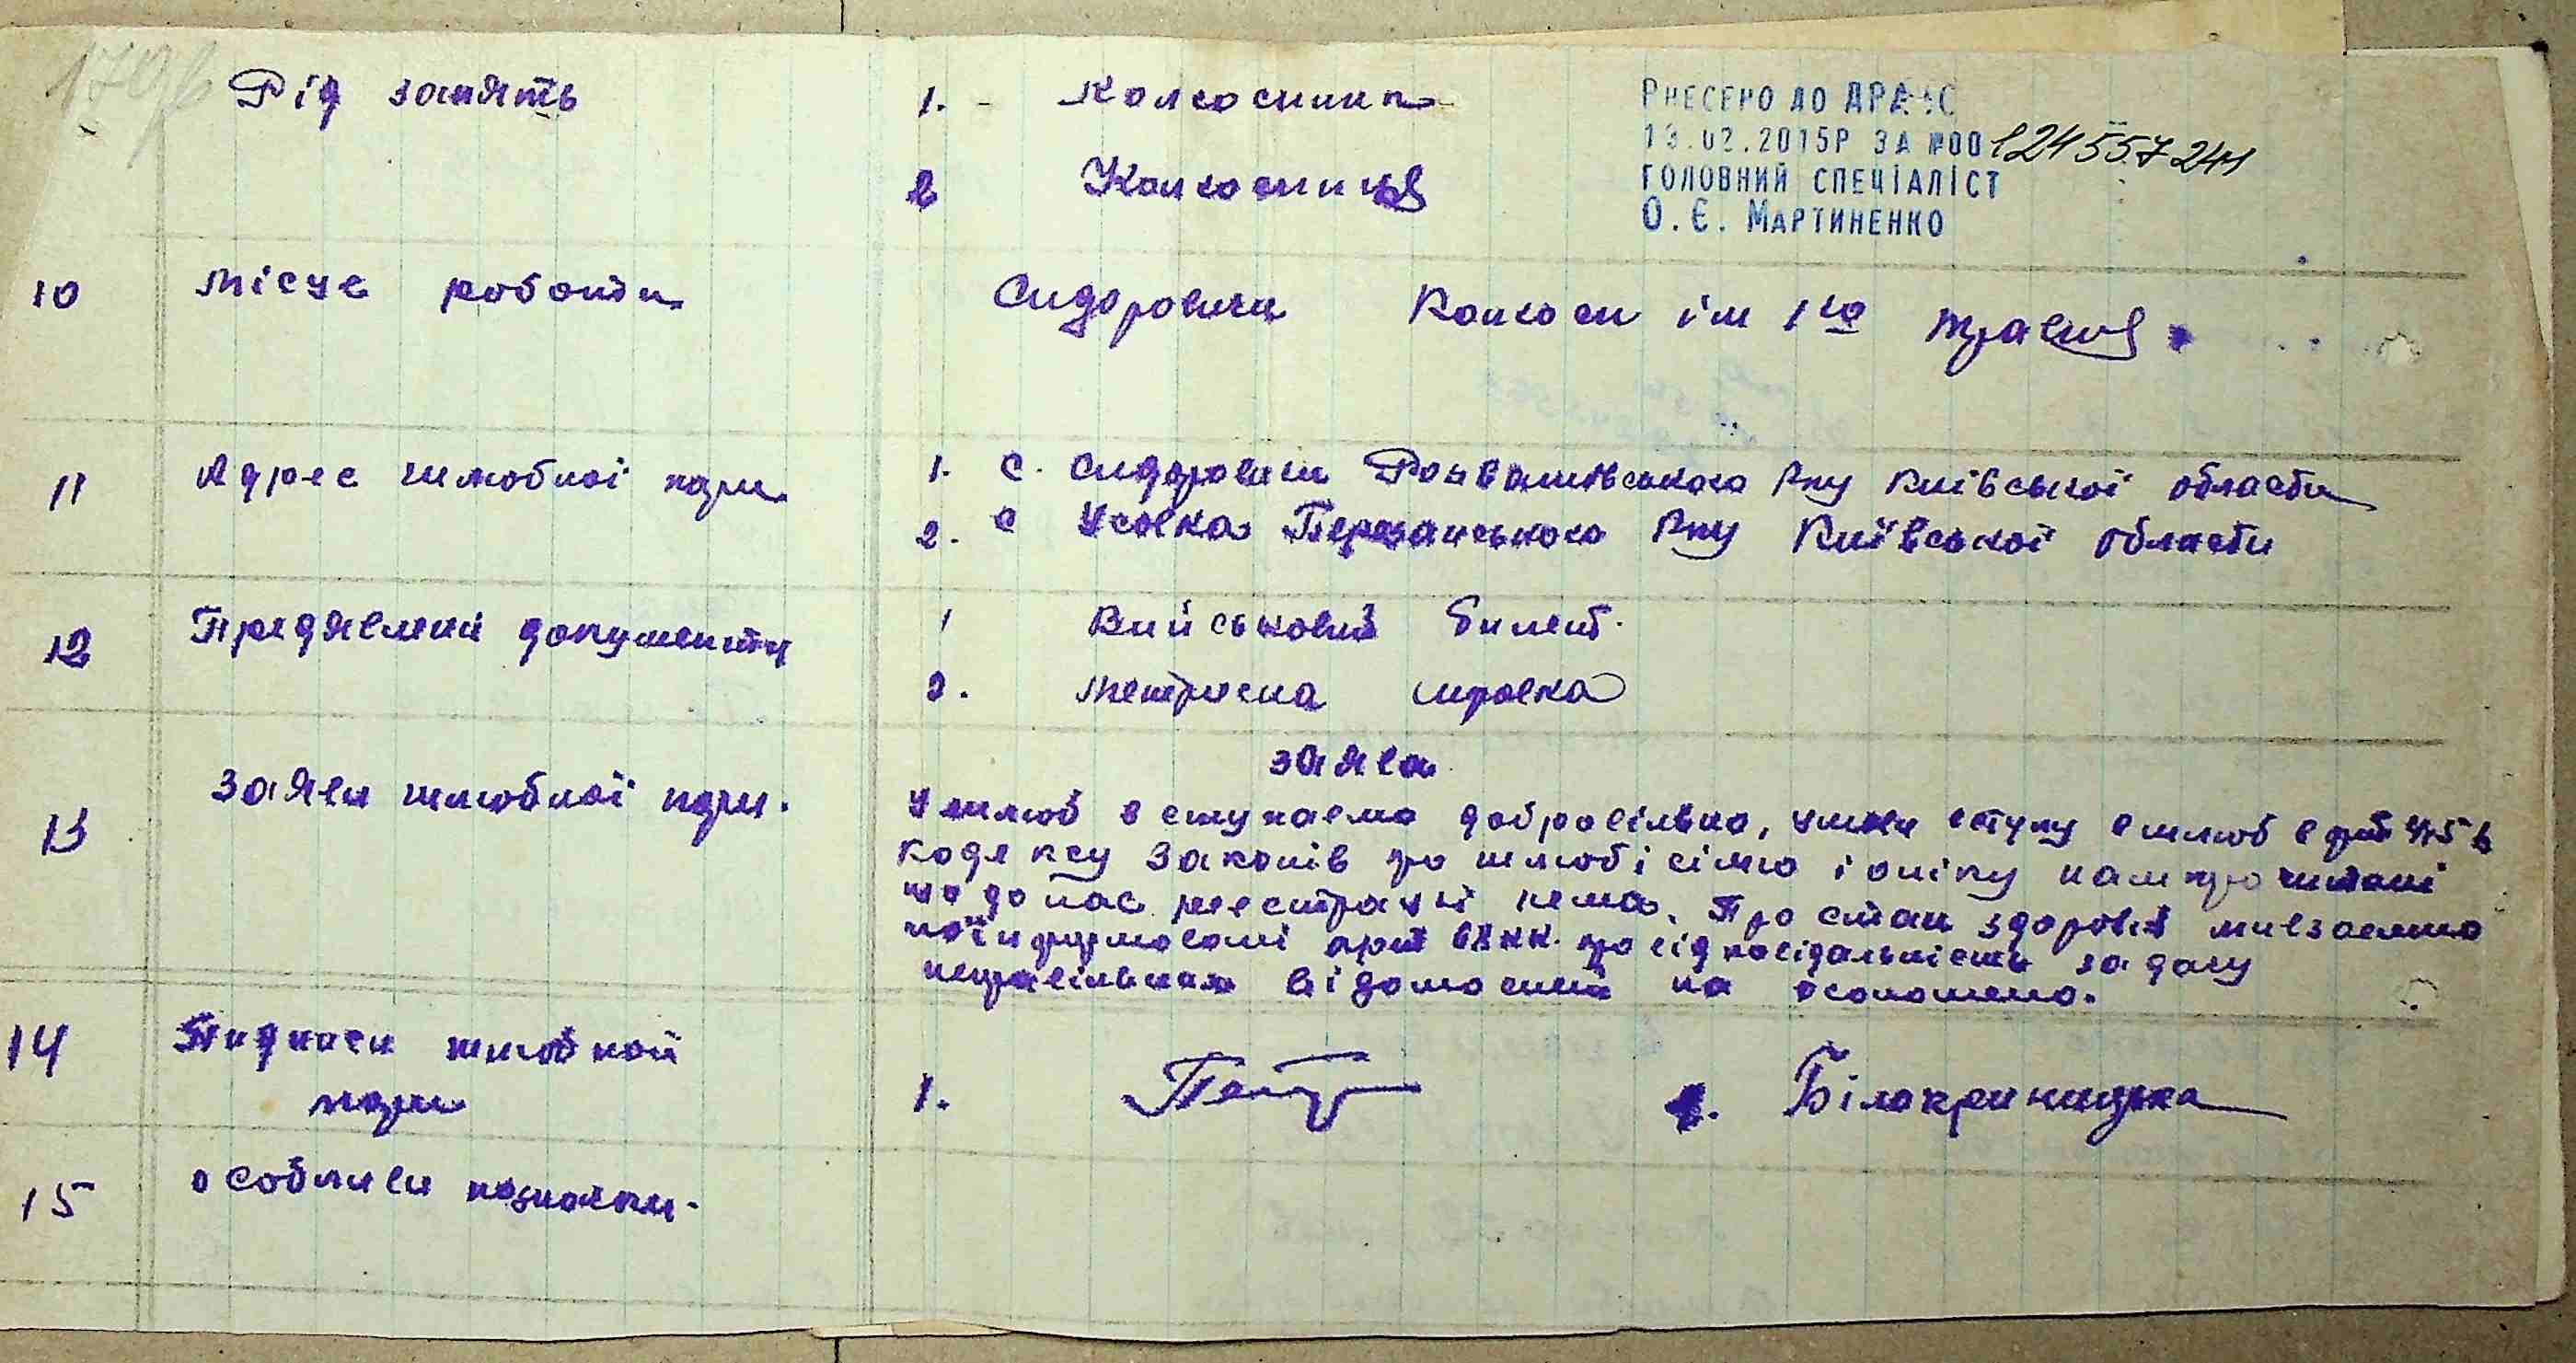 179 в
Рід занять
1. - Колгосник
2 Колгосниця
Внесено до ДРАЦС
13.02.2015р за №00124557241
Головний спеціаліст
О.Є. Мартиненко
10 Місце роботи Сидоровичі Колгосп ім 1го Травня.
11 Адрес шлюбноі пари 1. с. Сидоровичі Розважівського Рну Киівськоі области
2. с Усовка Березанського Рну Київської области
12 Предявлені документи 1 Військовий билет.
2. Метрична справка
13 Заяви шлюбної пари.
заява
У шлюб вступаемо добровільно, умови вступу в шлюб в
Кодексу Законів про шлюб і сімю і опіку нам прочитані
що до нас реєстрації нема. Про стан здоровя ми взаємно
поінформовані про відповідальність за дачу
неправільних відомостей на оголошено.
14 Пидписи шлюбной
пари
1. Пет 2. Білокриницька
15 особливи позначки.